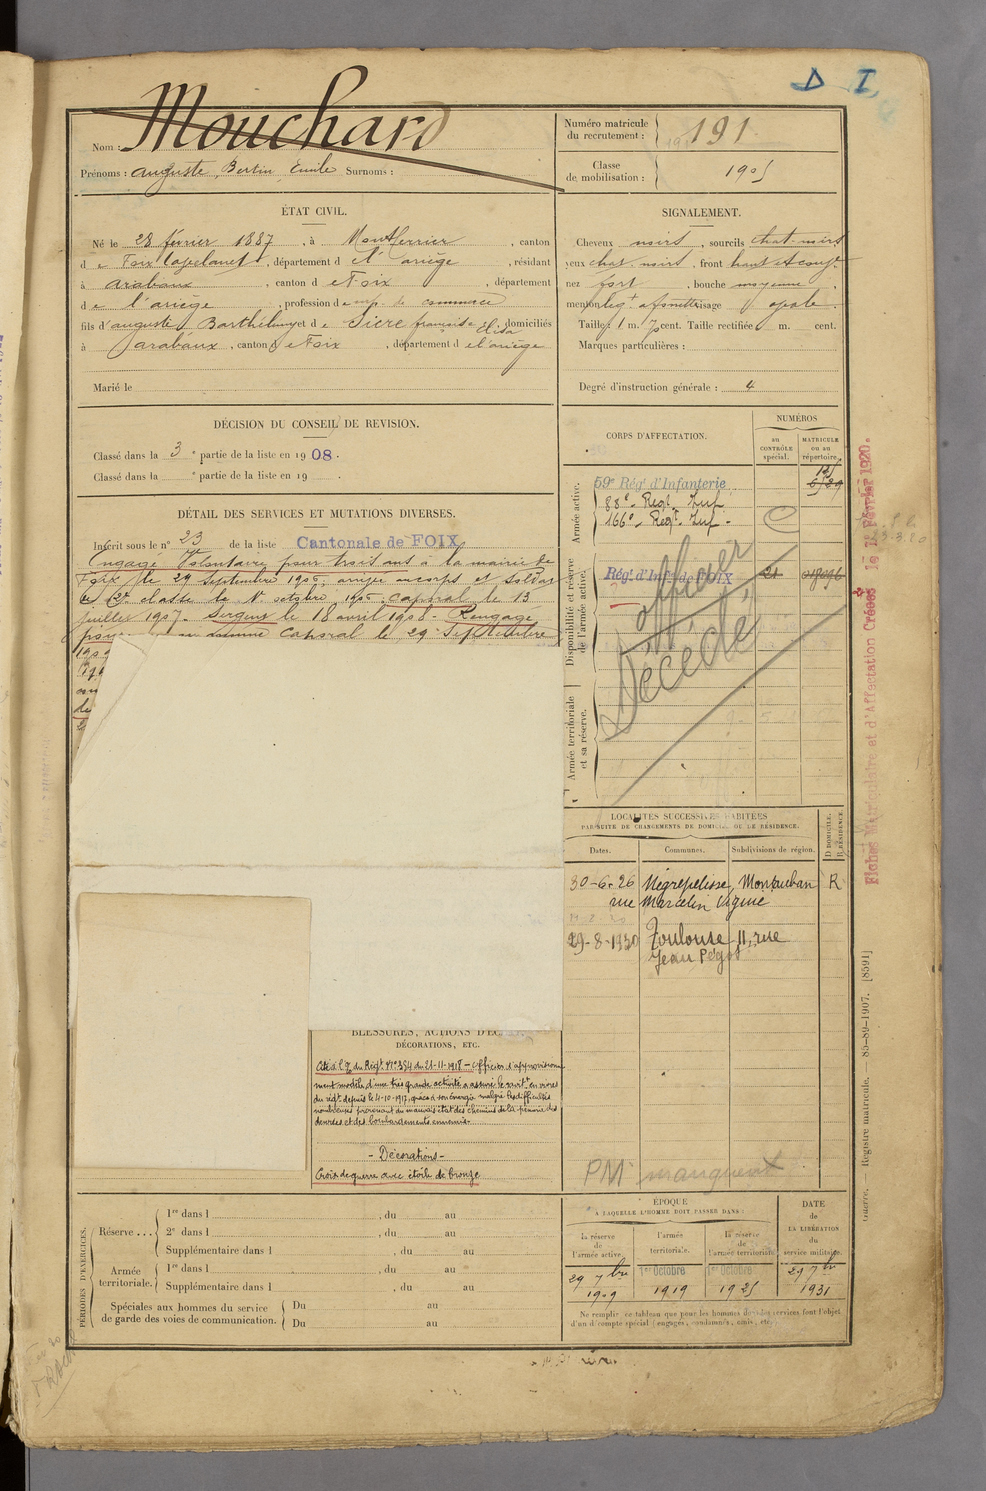 D I
Nom : Mouchard
Prénoms : Auguste, Bertin, Emile Surnoms :
Numéro matricule du recrutement : 191
Classe de mobilisation : 1905
ÉTAT CIVIL.
Né le 28 février 1887, à Montferrier, canton
de Foix Lavelanet, département de l'ariège, résidant
à arabaux, canton de Foix, département
de l'ariège, profession de emp. de commerce
fils d'auguste Barthélemy et de Sicre française Elisa, domiciliés
à arabaux, canton de Foix, département de l'ariège
Marié le
SIGNALEMENT.
Cheveux noirs, sourcils chat-noirs
yeux chat. noirs, front haut et
nez fort, bouche moyenne,
menton visage ovale
Taille : 1 m. 70 cent. Taille rectifiée m. cent.
Marques particulières :
Degré d'instruction générale : 4
DÉCISION DU CONSEIL DE REVISION.
Classé dans la 3e partie de la liste en 1908.
Classé dans la e partie de la liste en 19 .
DÉTAIL DES SERVICES ET MUTATIONS DIVERSES.
Inscrit sous le n° 23 de la liste Cantonale de FOIX
Engagé Volontaire pour trois ans à la mairie de
Foix le 29 Septembre 1905, arrivé au corps et soldat
de 2e classe le 1er octobre 1905, caporal le 13
juillet 1907. Sergent le 18 avril 1908. Rengagé
pour un comme caporal le 29 Septembre
1909
CORPS D'AFFECTATION.
NUMÉROS
au CONTRÔLE spécial.
MATRICULE ou au répertoire.
Armée active.
59e Rég. d'Infanterie
88e Régt Inf
166e Régt Inf.
Disponibilité et réserve de l'armée active.
Rég. d'Inf. de FOIX 21
officier
Décédé
Armée territoriale et sa réserve.
LOCALITÉS SUCCESSIVES HABITÉES
PAR SUITE DE CHANGEMENTS DE DOMICILE OU DE RÉSIDENCE.
Dates. Communes. Subdivisions de région. D DOMICILE. R RÉSIDENCE.
30-6-26 Nègrepelisse, Montauban R
rue Marcelin Vigné
29-8-1930 Toulouse, 11, rue
Jean Pégot
PM manquent
BLESSURES, ACTIONS D'ÉCLAT,
DÉCORATIONS, ETC.
Cité à l'O du Régt n° 354 du 21-11-1918 - officier d'approvisionne
ment modèle d'une très grande activité a assuré le ravitt en vivres
du régt depuis le 4-10-1917, grâce à son énergie malgré les difficultés
nombreuses provenant du mauvais état des chemins de la pénurie des
denrées et des bombardements ennemis.
- Décorations -
Croix de guerre avec étoile de bronze
PÉRIODES D'EXERCICES.
Réserve ...
1re dans l , du au
2e dans l , du au
Supplémentaire dans l , du au
Armée territoriale.
1re dans l , du au
Supplémentaire dans l , du au
Spéciales aux hommes du service de garde des voies de communication.
Du au
Du au
ÉPOQUE
À LAQUELLE L'HOMME DOIT PASSER DANS :
la réserve de l'armée active.
l'armée territoriale.
la réserve de l'armée territoriale
DATE de LA LIBÉRATION du service militaire.
29 7bre 1909
1er Octobre 1919
1er Octobre 1925
29 7bre 1931
Ne remplir ce tableau que pour les hommes dont les services font l'objet
d'un décompte spécial (engagés, condamnés, omis, etc.)
Fiches Matriculaire et d'Affectation Créées le 1er Février 1920.
Guerre. — Registre matricule. — 85-89-1907. [8591]